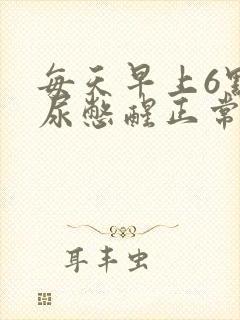 每天早上6點
尿憋醒正常
耳丰虫